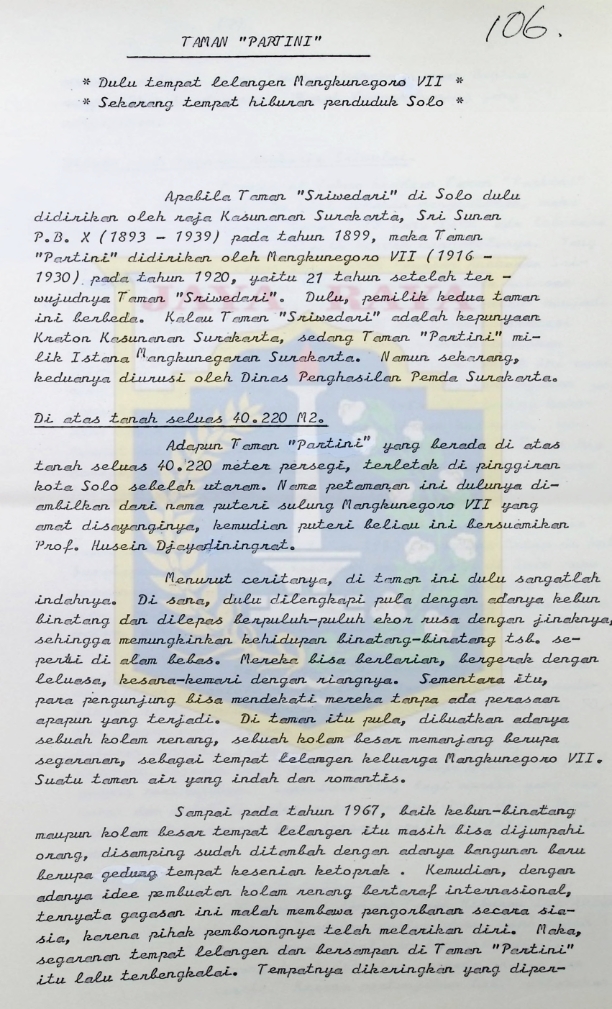 106.
TAMAN "PARTINI"
* Dulu tempat lelangen Mangkunegoro VII *
* Sekarang tempat hiburan penduduk Solo *
Apabila Taman "Sriwedari" di Solo dulu
didirikan oleh raja Kasunanan Surakarta, Sri Sunan
P.B. X (1893 - 1939) pada tahun 1899, maka Taman
"Partini" didirikan oleh Mangkunegoro VII (1916 -
1930) pada tahun 1920, yaitu 21 tahun setelah ter -
wujudnya Taman "Sriwedari". Dulu, pemilik kedua taman
ini berbeda. Kalau Taman "Sriwedari" adalah kepunyaan
Kraton Kasunanan Surakarta, sedang Taman "Partini" mi-
lik Istana Mangkunegaran Surakarta. Namun sekarang,
keduanya diurusi oleh Dinas Penghasilan Pemda Surakarta.
Di atas tanah seluas 40.220 M2.
Adapun Taman "Partini" yang berada di atas
tanah seluas 40.220 meter persegi, terletak di pinggiran
kota Solo sebelah utaram. Nama petamanan ini dulunya di-
ambilkan dari nama puteri sulung Mangkunegoro VII yang
amat disayanginya, kemudian puteri beliau ini bersuamikan
Prof. Husein Djayadiningrat.
Menurut ceritanya, di taman ini dulu sangatlah
indahnya. Di sana, dulu dilengkapi pula dengan adanya kebun
binatang dan dilepas berpuluh-puluh ekor rusa dengan jinaknya,
sehingga memungkinkan kehidupan binatang-binatang tsb. se-
perti di alam bebas. Mereka bisa berlarian, bergerak dengan
leluasa, kesana-kemari dengan riangnya. Sementara itu,
para pengunjung bisa mendekati mereka tanpa ada perasaan
apapun yang terjadi. Di taman itu pula, dibuatkan adanya
sebuah kolam renang, sebuah kolam besar memanjang berupa
segaranan, sebagai tempat lelangen keluarga Mangkunegoro VII.
Suatu taman air yang indah dan romantis.
Sampai pada tahun 1967, baik kebun-binatang
maupun kolam besar tempat lelangen itu masih bisa dijumpahi
orang, disamping sudah ditambah dengan adanya bangunan baru
berupa gedung tempat kesenian ketoprak . Kemudian, dengan
adanya idee pembuatan kolam renang bertaraf internasional,
ternyata gagasan ini malah membawa pengorbanan secara sia-
sia, karena pihak pemborongnya telah melarikan diri. Maka,
segaranan tempat lelangen dan bersampan di Taman "Partini"
itu lalu terbengkalai. Tempatnya dikeringkan yang diper-
JAYA RAYA